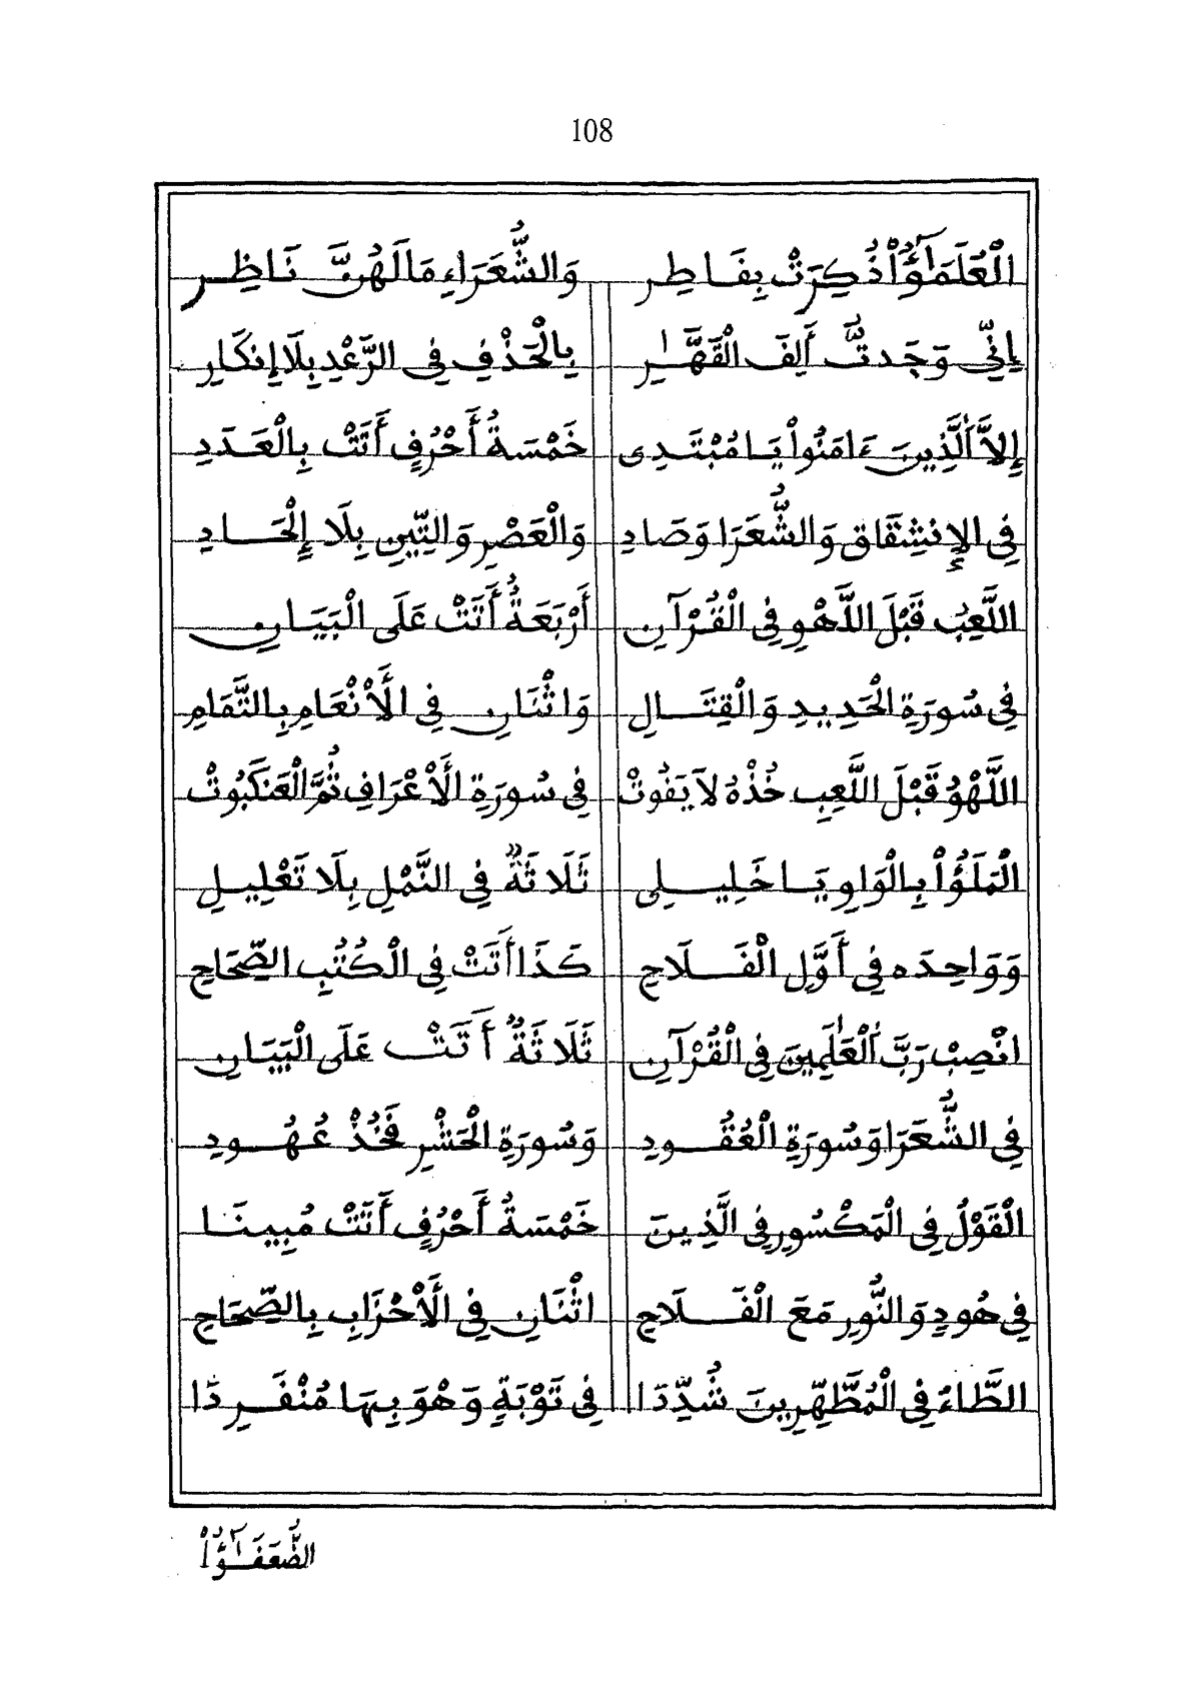 108
الْعُلَمَٰٓؤُاْ ذُكِرَتْ بِفَاطِرِ وَالشُّعَرَاءِ مَا لَهُنَّ نَاظِرِ
إِنِّي وَجَدتُّ أَلِفَ الْقَهَّٰرِ بِالْحَذْفِ فِي الرَّعْدِ بِلَا إِنكَارِ
إِلَّا ٱلَّذِينَ ءَامَنُواْ يَا مُبْتَدِى خَمْسَةُ أَحْرُفٍ أَتَتْ بِالْعَدَدِ
فِي الإِنشِقَاقِ وَالشُّعَرَا وَصَادِ وَالْعَصْرِ وَالتِّينِ بِلَا إِلْحَادِ
اللَّعِبُ قَبْلَ اللَّهْوِ فِي الْقُرْآنِ أَرْبَعَةٌ أَتَتْ عَلَى الْبَيَانِ
فِي سُورَةِ الْحَدِيدِ وَالْقِتَالِ وَاثْنَانِ فِي الْأَنْعَامِ بِالتَّمَامِ
اللَّهْوُ قَبْلَ اللَّعِبِ خُذْهُ لَا يَفُوتْ فِي سُورَةِ الْأَعْرَافِ ثُمَّ الْعَنكَبُوتْ
الْمَلَؤُاْ بِالْوَاوِ يَا خَلِيلِى ثَلَاثَةٌ فِي النَّمْلِ بِلَا تَعْلِيلِ
وَوَاحِدَه فِي أَوَّلِ الْفَلَاحِ كَذَا أَتَتْ فِي الْكُتُبِ الصِّحَاحِ
انْصِبْ رَبَّ ٱلْعَٰلَمِينَ فِي الْقُرْآنِ ثَلَاثَةٌ أَتَتْ عَلَى الْبَيَانِ
فِي الشُّعَرَا وَسُورَةِ الْعُقُودِ وَسُورَةِ الْحَشْرِ فَخُذْ عُهُودِ
الْقَوْلُ فِي الْمَكْسُورِ فِي الَّذِينَ خَمْسَةُ أَحْرُفٍ أَتَتْ مُبِينَا
فِي هُودٍ وَالنُّورِ مَعَ الْفَلَاحِ اثْنَانِ فِي الْأَحْزَابِ بِالصِّحَاحِ
الطَّاءُ فِي الْمُطَّهِّرِينَ شُدِّدَا فِي تَوْبَةٍ وَهْوَ بِهَا مُنْفَرِدَا
الضُّعَفَٰٓؤُاْ